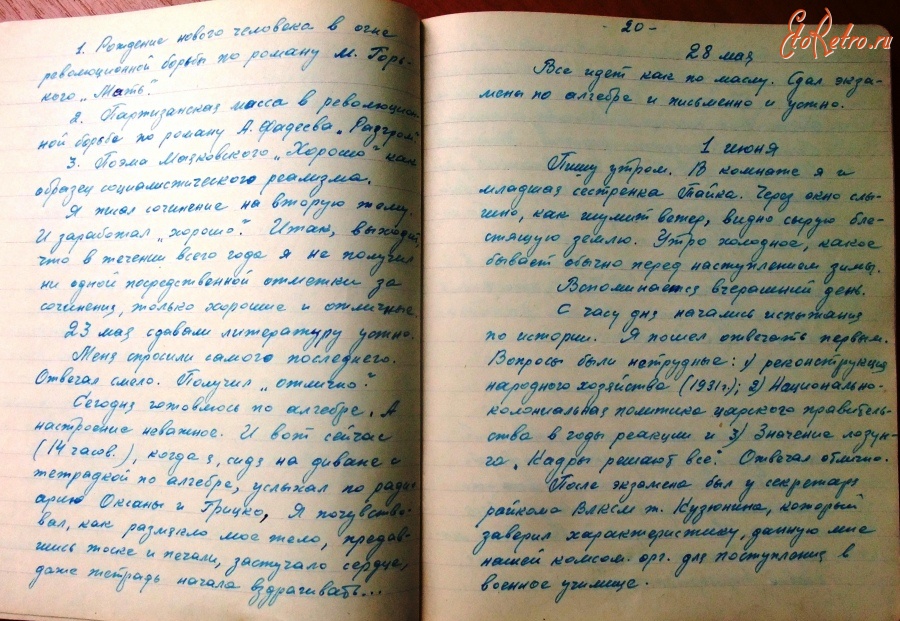 1. Рождение нового человека в огне
революционной борьбы по роману М. Горь-
кого „Мать".
2. Партизанская масса в революцион-
ной борьбе по роману А. Фадеева „Разгром".
3. Поэма Маяковского „Хорошо" как
образец социалистического реализма.
Я писал сочинение на вторую тему.
И заработал „хорошо". Итак, выходит,
что в течении всего года я не получил
ни одной посредственной отметки за
сочинения, только хорошие и отличные.
23 мая сдавали литературу устно.
Меня спросили самого последнего.
Отвечал смело. Получил „отлично".
Сегодня готовлюсь по алгебре. А
настроение неважное. И вот сейчас
(14 часов.), когда я, сидя на диване с
тетрадкой по алгебре, услыхал по радио
арию Оксаны и Грицко, Я почувство-
вал, как размякло мое тело, предав-
шись тоске и печали, застучало сердце,
даже тетрадь начала вздрагивать...
- 20 -
28 мая
Все идет как по маслу. Сдал экза-
мены по алгебре и письменно и устно.
1 июня
Пишу утром. В комнате я и
младшая сестренка Тайка. Через окно слы-
шно, как шумит ветер, видно сырую бле-
стящую землю. Утро холодное, какое
бывает обычно перед наступлением зимы.
Вспоминается вчерашний день.
С часу дня начались испытания
по истории. Я пошел отвечать первым.
Вопросы были нетрудные: 1) реконструкция
народного хозяйства (1931 г.); 2) Национально-
колониальная политика царского правитель-
ства в годы реакции и 3) Значение лозун-
га „Кадры решают все". Отвечал отлично.
После экзамена был у секретаря
райкома ВЛКСМ т. Кузюнина, который
заверил характеристику, данную мне
нашей комсом. орг. для поступления в
военное училище.
EtoRetro.ru